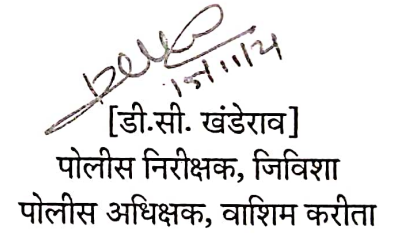 15/11/21
[डी.सी. खंडेराव]
पोलीस निरीक्षक, जिविशा
पोलीस अधिक्षक, वाशिम करीता